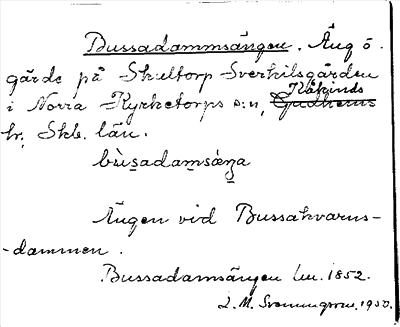 Bussadammsängen. Äng ö.
gärde på Skultorp Sverkilsgården
i Norra Kyrketorps s:n, Kåkinds
hr, Skb. län.
bùsadamsæŋa
Ängen vid Bussakvarns-
-dammen.
Bussadamsängen lm. 1852.
L. M. Svenungsson. 1930.